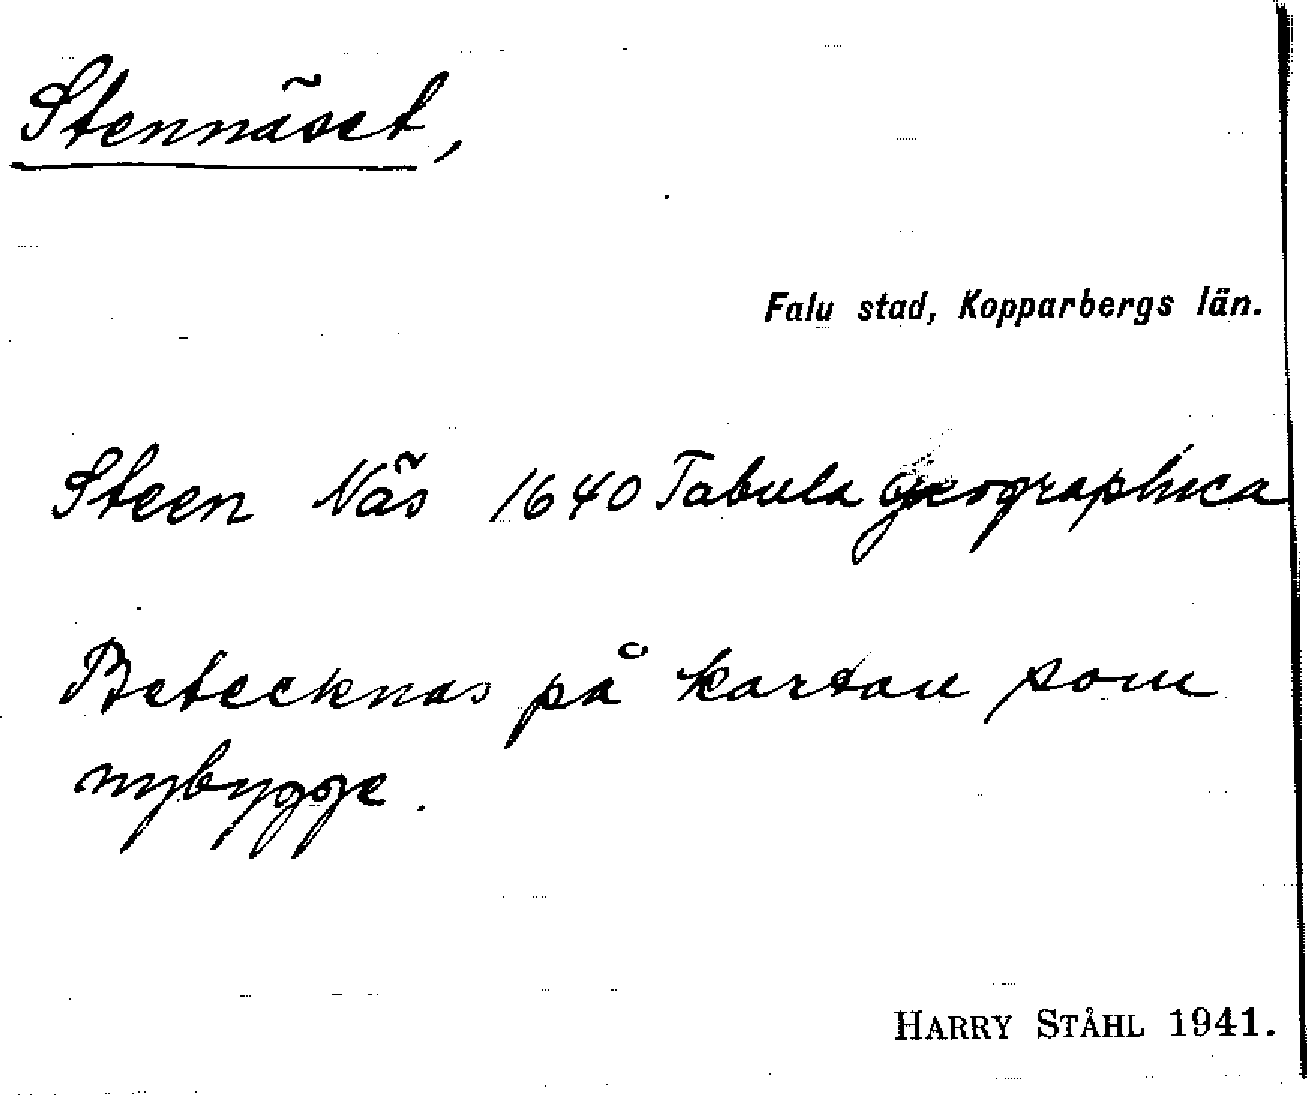 Stennäset,
Falu stad, Kopparbergs län.
Steen Näs 1640 Tabula geographica
Betecknas på kartan som
nybygge.
HARRY STÅHL 1941.